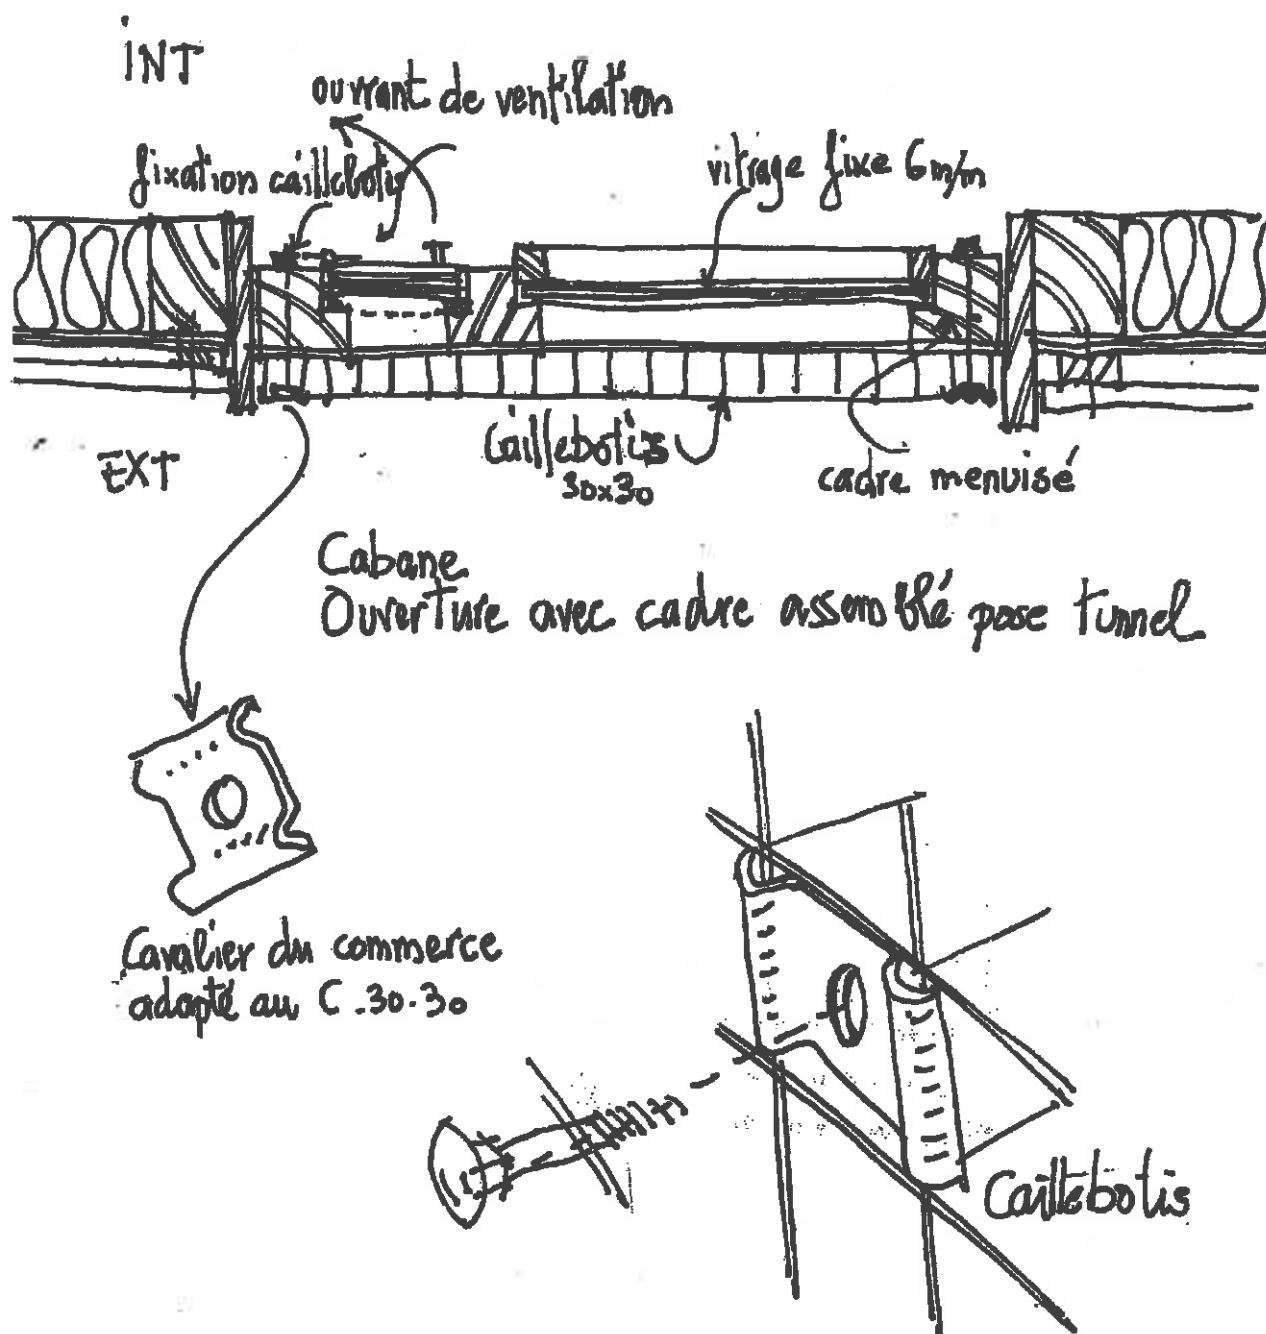 INT
ouvrant de ventilation
fixation caillebotis
vitrage fixe 6 m/m
EXT
Caillebotis
30x30
cadre menuisé
Cabane
Ouverture avec cadre assemblé pose tunnel
Cavalier du commerce
adapté au C.30.30
Caillebotis